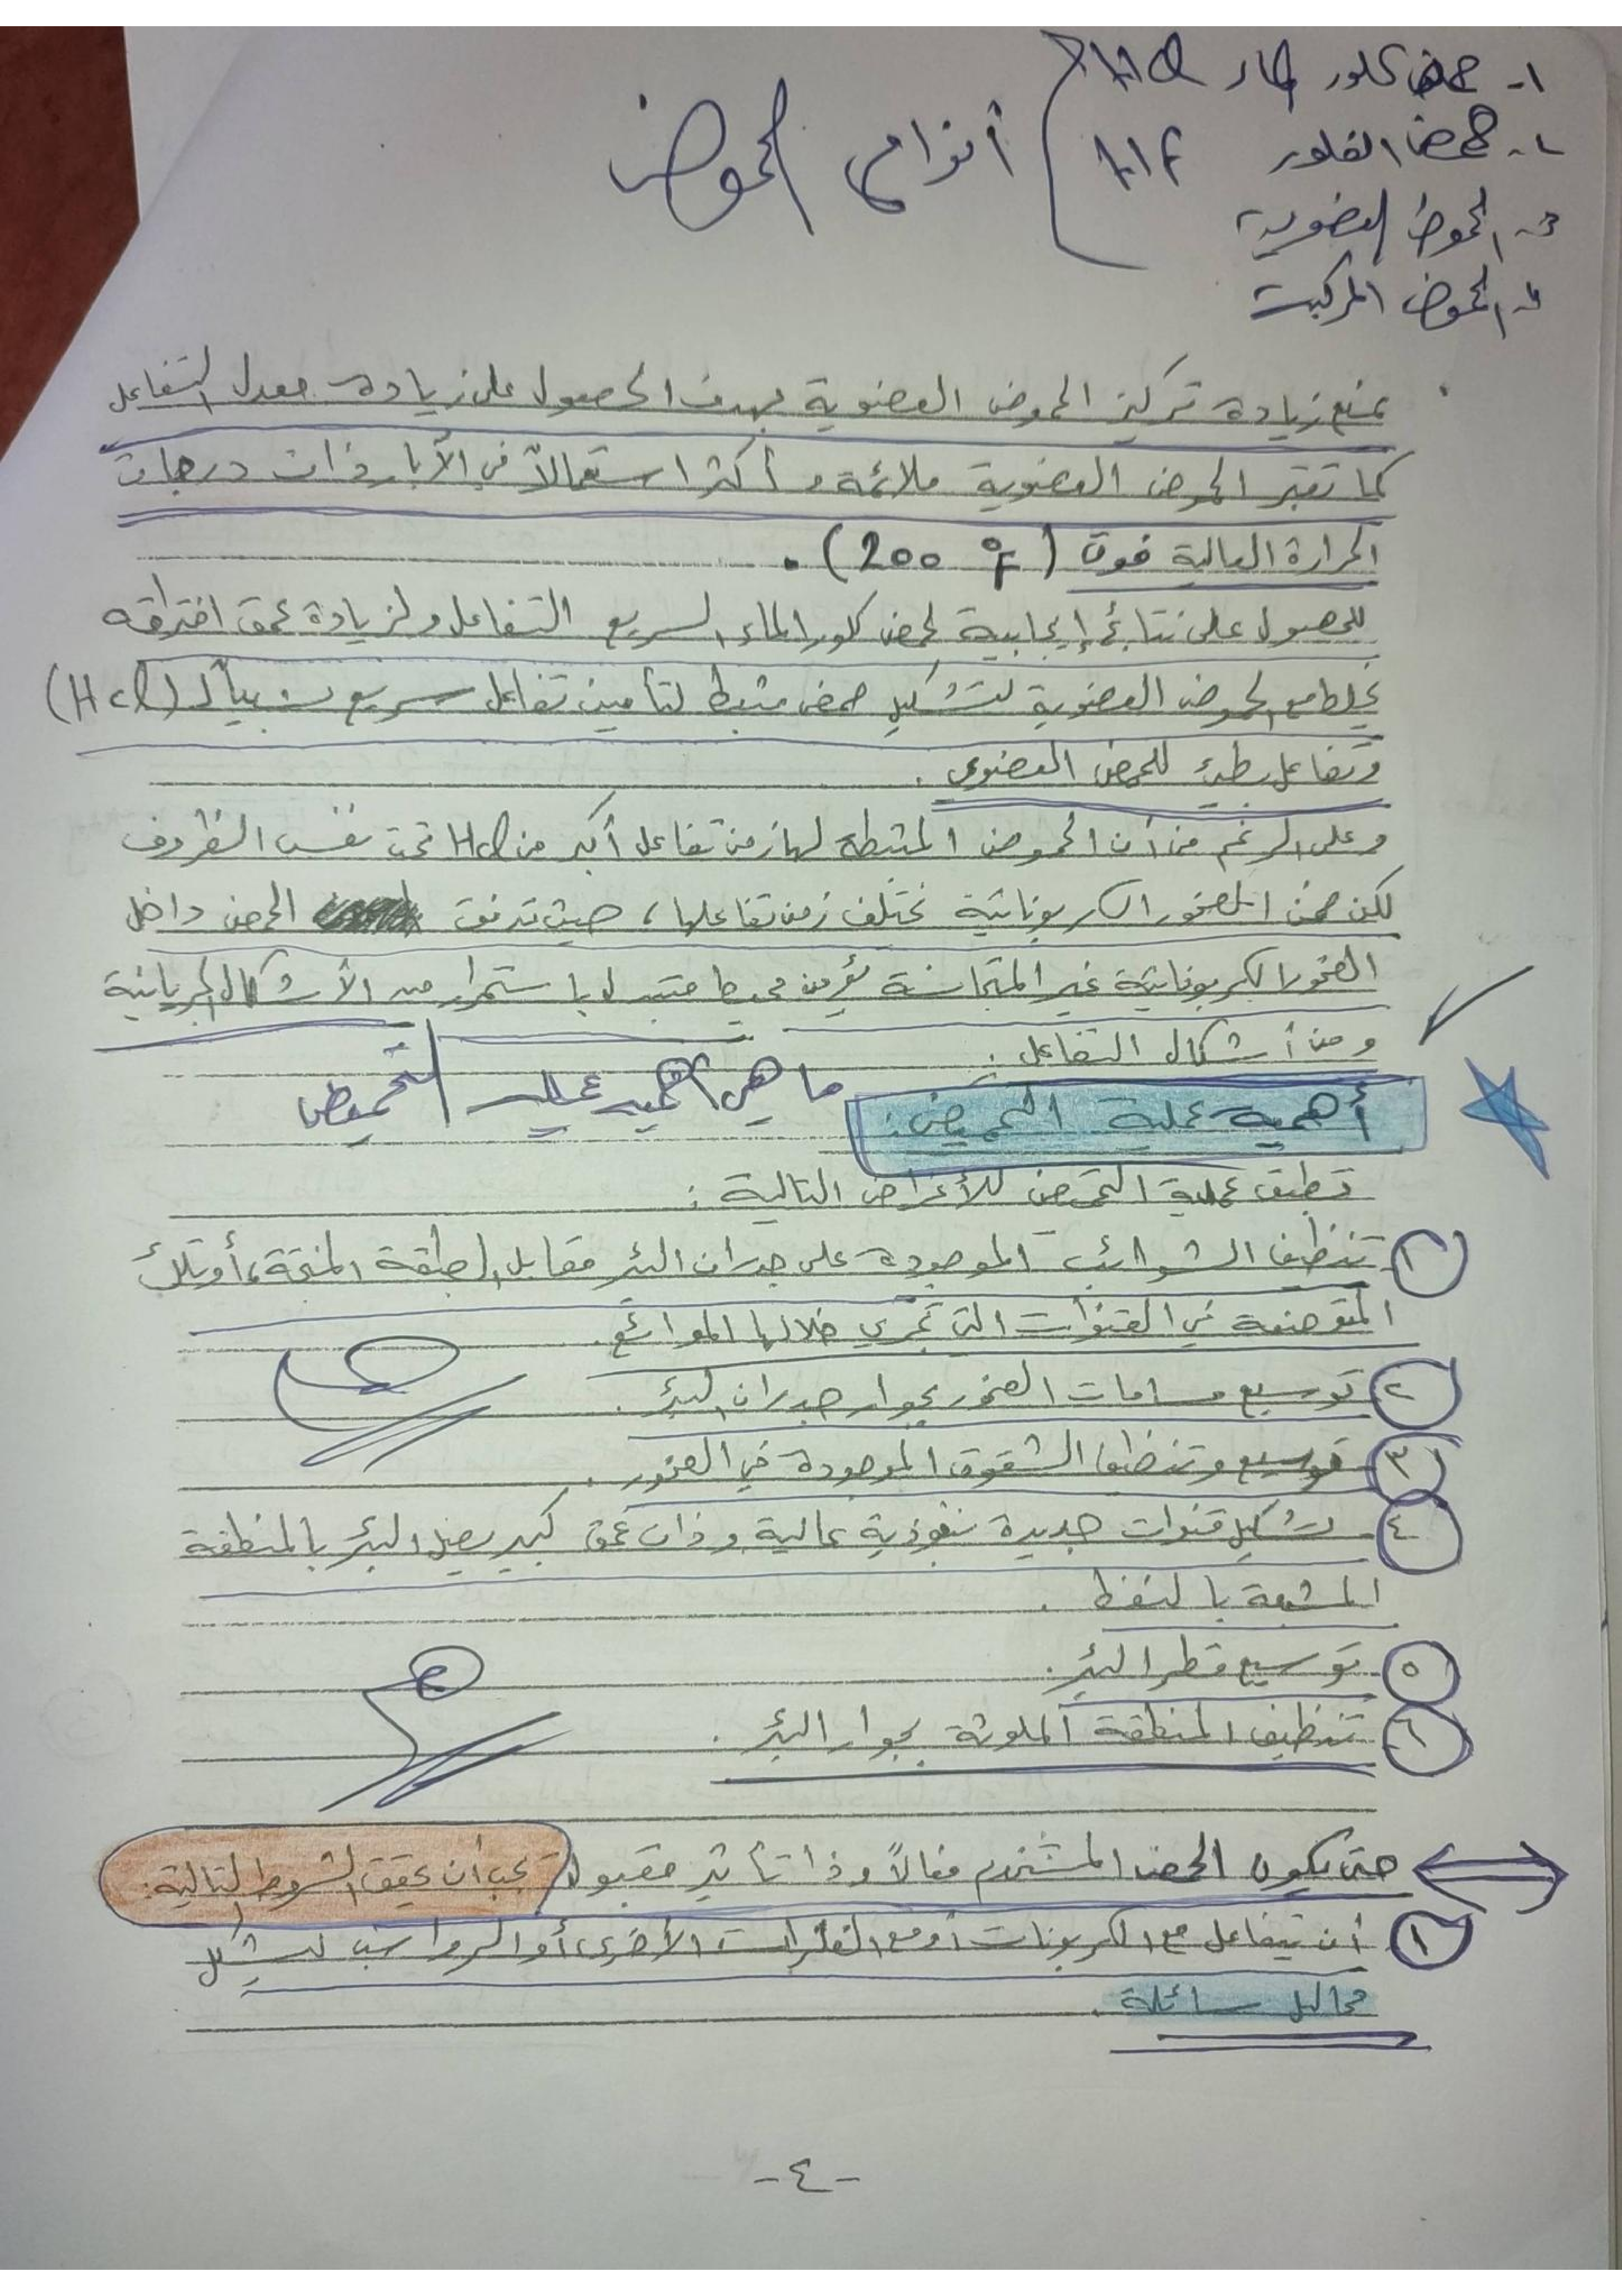 ١- حمض كلور الماء HCl
٢- حمض الفلور HF
٣- الحموض العضوية
٤- الحموض المركبة
أنواع الحموض
يمنع زيادة تركيز الحموض العضوية بهدف الحصول على زيادة معدل التفاعل
كما تعتبر الحموض العضوية ملائمة و أكثر استعمالاً في الآبار ذات درجات
الحرارة العالية فوق (200 °F) .
للحصول على نتائج إيجابية لحمض كلور الماء السريع التفاعل ولزيادة عمق اختراقه
يخلط مع الحموض العضوية لتشكيل حمض مثبط لتأمين تفاعل سريع نسبياً لـ (HCl)
وتفاعل بطيء للحمض العضوي .
وعلى الرغم من أن الحموض المثبطة لها زمن تفاعل أكبر من HCl تحت نفس الظروف
لكن ضمن الصخور الكربوناتية يختلف زمن تفاعلها ، حيث تدفق الحمض داخل
الصخور الكربوناتية غير المتجانسة يؤمن محيط متبدل باستمرار من الأشكال الجريانية
ومن أشكال التفاعل :
أهمية عملية التحميض : ما هي أهمية عملية التحميض
تطبق عملية التحميض للأغراض التالية :
١- تنظيف الشوائب الموجودة على جدران البئر مقابل الطبقة المنتجة، أو تلك
المتوضعة في القنوات التي تجري خلالها الموائع .
٢- توسيع مسامات الصخور بجوار جدران البئر .
٣- توسيع وتنظيف الشقوق الموجودة في الصخور .
٤- تشكيل قنوات جديدة بنفوذية عالية وذات عمق كبير يصل البئر بالمنطقة
المشبعة بالنفط .
٥- توسيع قطر البئر .
٦- تنظيف المنطقة الملوثة بجوار البئر .
حتى يكون الحمض المستخدم فعالاً وذا تأثير مقبول يجب أن يحقق الشروط التالية :
١- أن يتفاعل مع الكربونات أو مع الفلزات الأخرى أو الرواسب ليشكل
محاليل سائلة .
- ٤ -